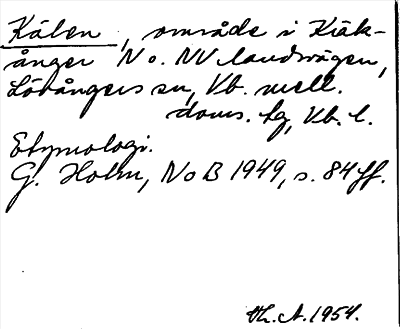 Kälen, område i Kräk-
ånger N o. NV landsvägen,
Lövångers sn, Vb. mell.
doms. tg, Vb. l.
Etymologi.
G. Holm, NoB 1949, s. 84 ff.
Th. A. 1954.